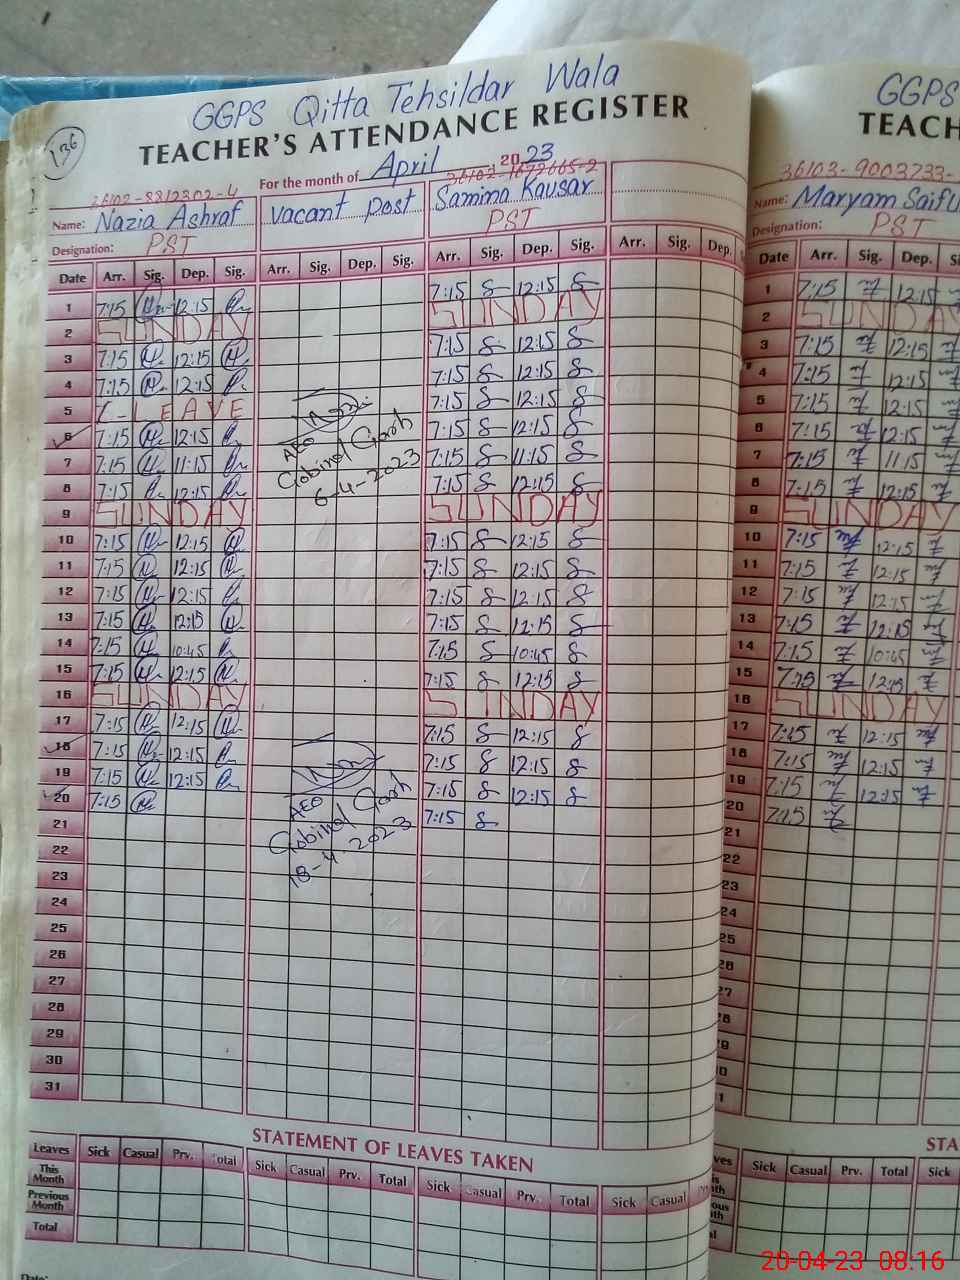 GGPS Qitta Tehsildar Wala
TEACHER'S ATTENDANCE REGISTER
136
For the month of April, 2023
36102-8812302-4
36102-1672665-2
Name: Nazia Ashraf vacant post Samina Kausar
Designation: PST PST
Date Arr. Sig. Dep. Sig. Arr. Sig. Dep. Sig. Arr. Sig. Dep. Sig. Arr. Sig. Dep.
1 7:15 12:15 7:15 12:15
2 SUNDAY SUNDAY
3 7:15 12:15 7:15 12:15
4 7:15 12:15 7:15 12:15
5 C-LEAVE 7:15 12:15
6 7:15 12:15 7:15 12:15
7 7:15 11:15 7:15 11:15
8 7:15 12:15 7:15 12:15
9 SUNDAY SUNDAY
10 7:15 12:15 7:15 12:15
11 7:15 12:15 7:15 12:15
12 7:15 12:15 7:15 12:15
13 7:15 12:15 7:15 12:15
14 7:15 10:45 7:15 10:45
15 7:15 12:15 7:15 12:15
16 SUNDAY SUNDAY
17 7:15 12:15 7:15 12:15
18 7:15 12:15 7:15 12:15
19 7:15 12:15 7:15 12:15
20 7:15 7:15
21
22
23
24
25
26
27
28
29
30
31
AEO
6-4-2023
AEO
18-4 2023
STATEMENT OF LEAVES TAKEN
Leaves Sick Casual Prv. Total Sick Casual Prv. Total Sick Casual Prv. Total Sick Casual
This Month
Previous Month
Total
GGPS
TEACH
36103-9003733-
Name: Maryam Saifu
Designation: PST
Date Arr. Sig. Dep.
1 7:15 12:15
2 SUNDAY
3 7:15 12:15
4 7:15 12:15
5 7:15 12:15
6 7:15 12:15
7 7:15 11:15
8 7:15 12:15
9 SUNDAY
10 7:15 12:15
11 7:15 12:15
12 7:15 12:15
13 7:15 12:15
14 7:15 10:45
15 7:15 12:15
16 SUNDAY
17 7:15 12:15
18 7:15 12:15
19 7:15 12:15
20 7:15
21
22
23
24
25
26
27
28
29
STA
Sick Casual Prv. Total Sick
20-04-23 08:16